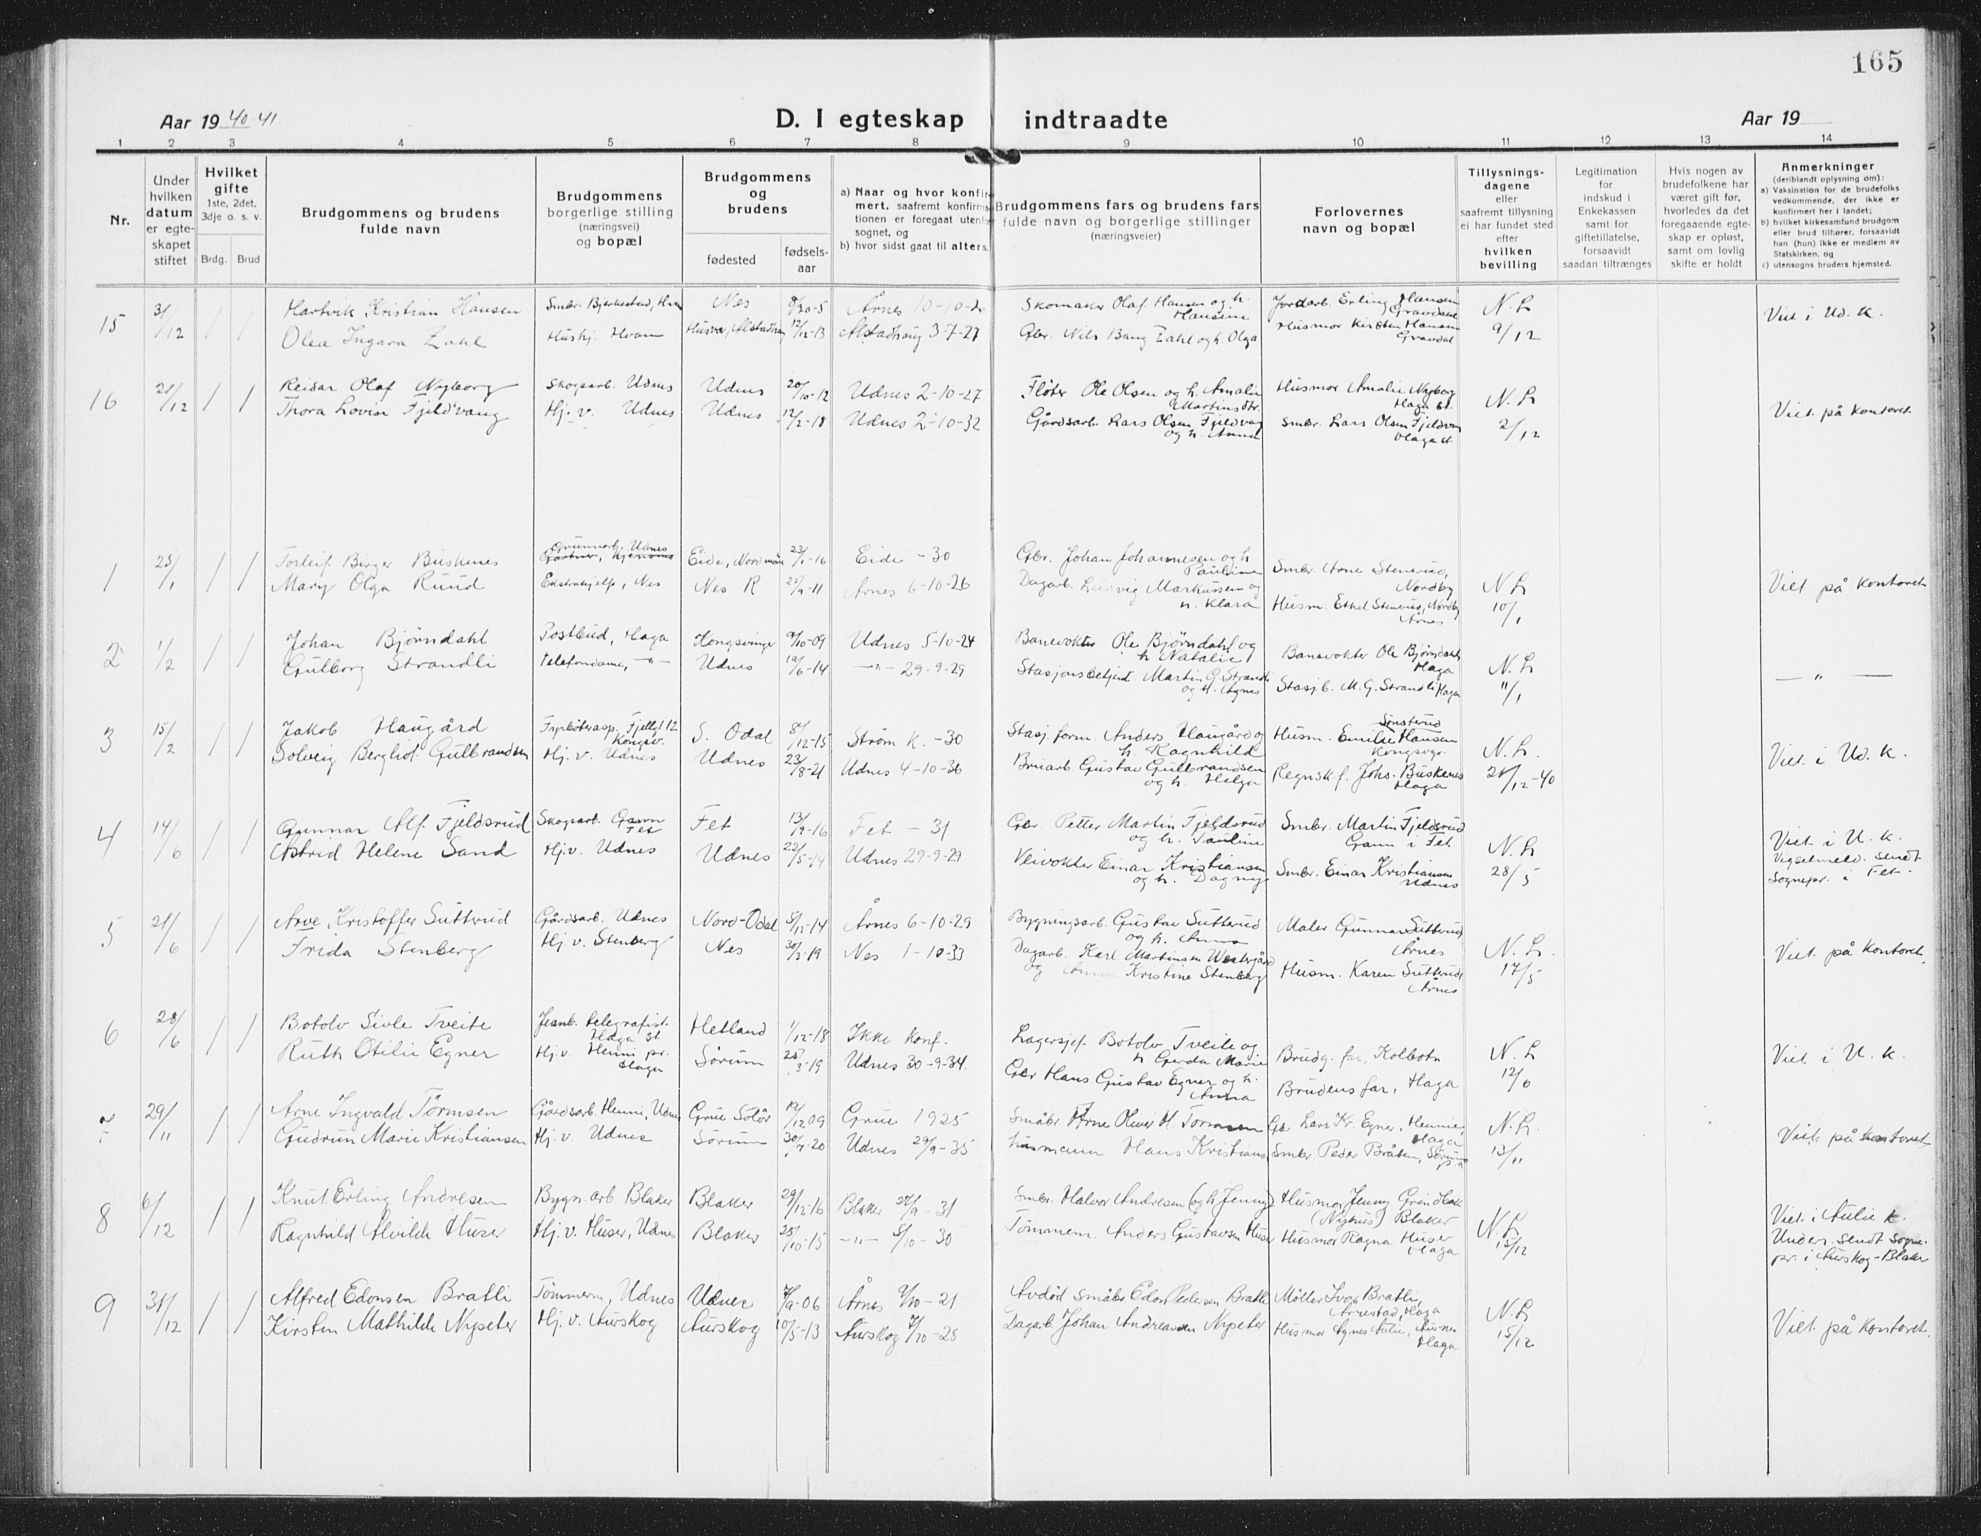 165
Aar 19 40-41.
D. I egteskap indtraadte
Aar 19
1 2 3 4 5 6 7 8 9 10 11 12 13 14
Nr.
Under hvilken datum er egteskapet stiftet
Hvilket gifte 1ste, 2det, 3dje o. s. v.
Brdg. Brud
Brudgommens og brudens fulde navn
Brudgommens borgerlige stilling (næringsvei) og bopæl
Brudgommens og brudens
fødested
fødsels-aar
a) Naar og hvor konfirmert, saafremt konfirmationen er foregaat utenfor sognet, og
b) hvor sidst gaat til alters.
Brudgommens fars og brudens fars fulde navn og borgerlige stillinger (næringsveier)
Forlovernes navn og bopæl
Tillysnings-dagene eller saafremt tillysning ei har fundet sted efter hvilken bevilling
Legitimation for indskud i Enkekassen samt for giftetillatelse, forsaavidt saadan tiltrænges
Hvis nogen av brudefolkene har været gift før, hvorledes da det foregaaende egteskap er opløst, samt om lovlig skifte er holdt
Anmerkninger (deriblandt oplysning om):
a) Vaksinstion for de brudefolks vedkommende, der ikke er konfirmert her i landet;
b) hvilket kirkesamfund brudgom eller brud tilhører, forsaavidt han (hun) ikke er medlem av Statskirken, og
c) utensogns bruders hjemsted.
15 31/12 1 1 Hartvik Kristian Hansen Smbr. Nes Årnes 10-10-20 Skomaker Olaf Hansen og h. Hansine Jordarb. Erling Hansen Gravdal N. L. Viet i Ud. k.
Olea Ingara Zahl Hushj. Hvam 12/12-13 Alstadhaug 3-7-27 Gbr. Nils Bang Zahl og h. Olga Husmor Kirsten Hansen Gravdal 9/12
16 21/12 1 1 Reidar Olaf Nyborg Skogsarb. Udnes Udnes 20/10-12 Udnes 2-10-27 Fløter Ole Olsen og h. Amalie Martinsdtr. Husmor Amalie Nyborg Haga st. N. L. Viet på kontoret
Thora Lovise Fjeldvang Hj. v. Udnes Udnes 12/2-18 Udnes 2-10-32 Gårdsarb. Lars Olsen Fjeldvang og h. Anna Smbr. Lars Olsen Fjeldvang Haga st. 2/12
1 25/1 1 1 Torleif Birger Buskenes Udnes Eide, Nordmøre 23/1-16 Eide - 30 Gbr. Johan Johannesen og h. Pauline Smbr. Arne Stenerud, Nordby N. L. Viet på kontoret
Mary Olga Ruud Nes Nes R 11 Årnes 6-10-26 Dagarb. Ludvig Markussen og h. Klara Husm. Ethel Stenerud, Nordby Årnes 10/1
2 1/2 1 1 Johan Bjørndahl Postbud, Haga Kongsvinger 9/10-09 Udnes 5-10-24 Banevokter Ole Bjørndahl og h. Natalie Banevokter Ole Bjørndahl Haga N. L. — " —
Gulborg Strandli Telefondame, -"- Udnes 19/6-14 -"- 29-9-29 Stasjonsbetjent Martin G. Strandli og h. Agnes Stasj.b. M. G. Strandli Haga 11/1
3 15/2 1 1 Jakob Haugård Fjellgt 12 Kongsv. S. Odal 8/12-15 Strøm k. -30 Stasj. form. Anders Haugård og h. Ragnhilde Husm. Emilie Hansen Sønsterud Kongsvgr. N. L. Viet i Ud. k.
Solveig Berghof Gulbrandsen Hj. v. Udnes Udnes 23/8-21 Udnes 4-10-36 Bruarb. Gustav Gulbrandsen og h. Helga Regnsk.f. Johs. Buskenes Haga 21/12-40
4 14/6 1 1 Gunnar Alf Fjeldsrud Skogsarb. Gann Fet Fet 13/9-16 Fet - 31 Gbr. Petter Martin Fjeldsrud og h. Pauline Smbr. Martin Fjeldsrud Gann i Fet N. L. Viet i U. k.
Astrid Helene Sand Hj.v. Udnes Udnes 22/5-14 Udnes 29-9-29 Veivokter Einar Kristiansen og h. Dagny Smbr. Einar Kristiansen Udnes 28/5 Vigselmeld. sendt Sognepr. i Fet.
5 21/6 1 1 Arve Kristoffer Sutterud Gårdsarb. Udnes Nord-Odal 5/12-14 Årnes 6-10-29 Bygningsarb. Gustav Sutterud og h. Anna Maler Gunnar Sutterud Årnes N. L. Viet på kontoret.
Frida Stenberg Hj v. Stenberg Nes 30/3-19 Nes 1-10-33 Dagarb. Karl Martinsen Westergård og Anna Kristine Stenberg Husm. Karen Sutterud Årnes 17/5
6 28/6 1 1 Botolv Sivle Tveite Jernb. telegrafist. Haga st Hetland 1/12-18 Ikke konf. Lagersjef Botolv Tveite og h Gerda Marie Brudg. far, Kolbotn N. L. Viet i U. k.
Ruth Otilie Egner Hj.v. Henni pr. Haga Sørum 25/3-19 Udnes 30-9-34. Gbr Hans Gustav Egner og h. Anna Brudens far, Haga 12/6
7 29/11 1 1 Arne Ingvald Tørmsen Gårdsarb. Henni, Udnes Grue Solør 12/12 09 Grue 1925 Småbr. Arne Oliver H. Tormsen Gbr Lars Kr. Egner, Hennie, Haga N. L. Viet på kontoret
Gudrun Marie Kristiansen Hj. v. Udnes Sørum 30/7-20 Udnes 29/9-35 Husmann Hans Kristians. Smbr. Peder Bråten, Sørum 13/11
8 6/12 1 1 Knut Erling Andresen Bygn. arb. Blaker Blaker 29/12-16 Blaker 27/9-31 Smbr. Halvor Andresen (og h Jenny) Husmor Jenny (Nyhus) Blaker N. L. Viet i Aulie k.
Ragnhild Alvilde Huser Hj. v. Huser, Udnes Blaker 25/10-15 -"- 5/10-30 Tømmerm. Anders Gustavsen Huser Husmor Ragna Huser Haga 15/12 Underr. sendt Sognepr. i Aurskog-Blaker
9 31/12 1 1 Alfred Edonsen Bratli Tømmerm, Udnes Udnes 7/9-06 Årnes 2/10-21 Avdød Småbr Edon Pedersen Bratli Møller Ivar Bratli, Årnestad, Haga N. L. Viet på kontoret.
Kirsten Mathilde Nyseter Hj. v. Aurskog Aurskog 10/5-13 Aurskog 7/10-28 Dagarb Johan Andreassen Nyseter Husmor Agnes Aulie, Haga 15/12